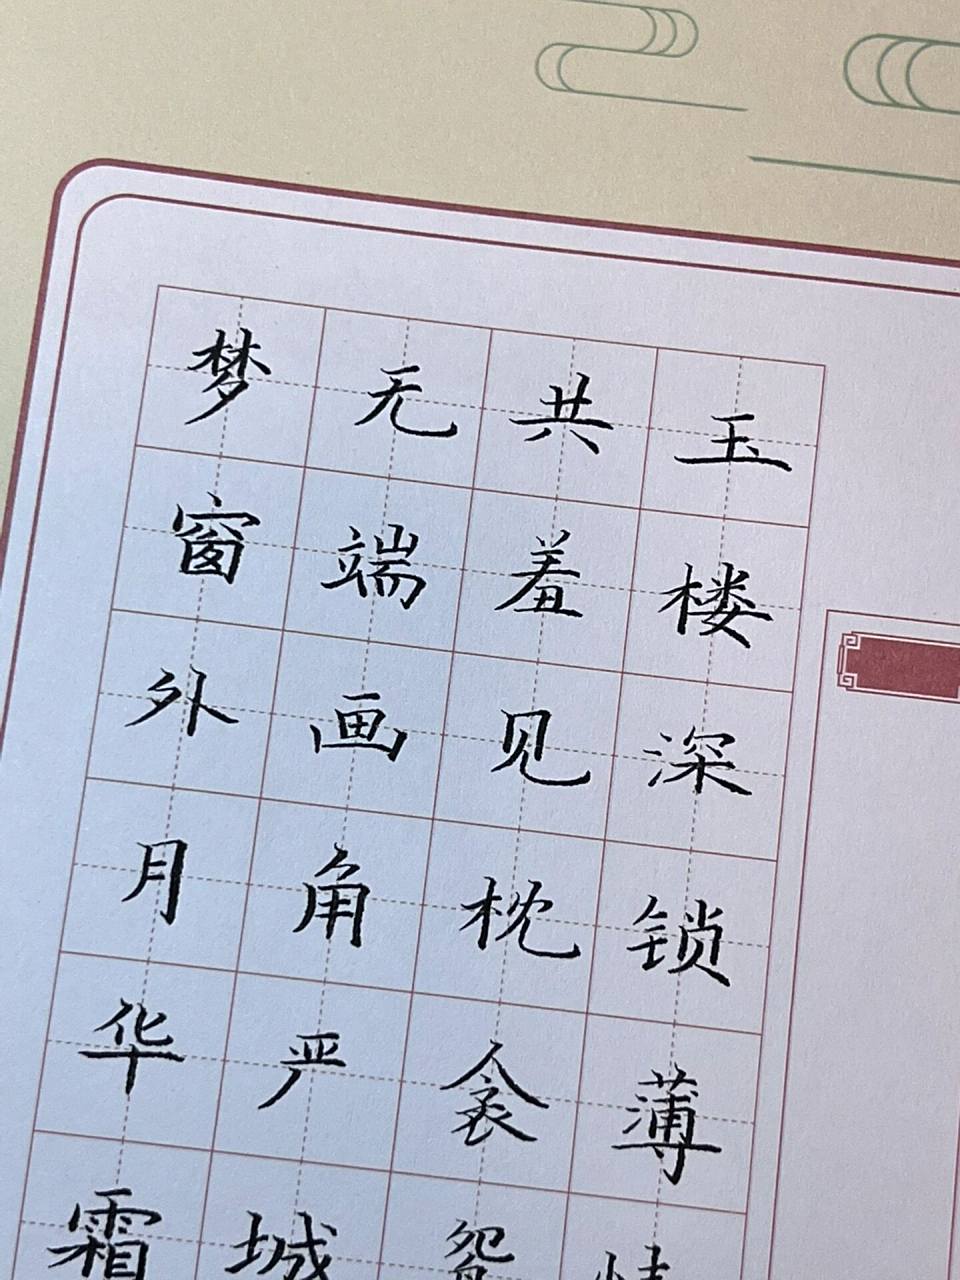 玉楼深锁薄情
共羞见枕衾鸳
无端画角严城
梦窗外月华霜